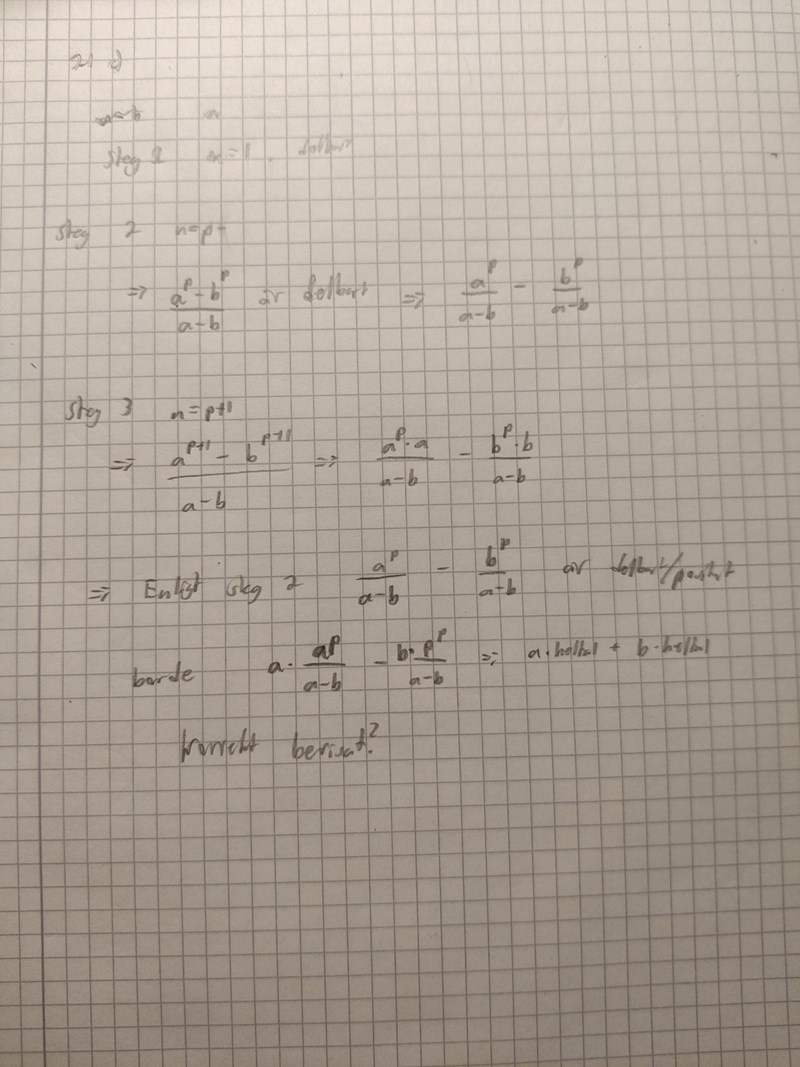 21 c)
a-b n
Steg 1 n=1.
Steg 2 n=p
⇒ (a^p - b^p)/(a-b) är delbart ⇒ a^p/(a-b) - b^p/(a-b)
Steg 3 n=p+1
⇒ (a^(p+1) - b^(p+1))/(a-b) ⇒ (a^p·a)/(a-b) - (b^p·b)/(a-b)
⇒ Enligt steg 2 a^p/(a-b) - b^p/(a-b) är delbart/
borde a· a^p/(a-b) - b· p^p/(a-b) ⇒ a·heltal + b·heltal
korrekt bevisat?